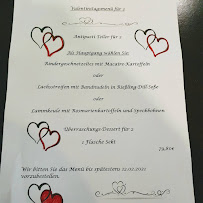 Valentinstagsmenü für 2
Antipasti Teller für 2
Als Hauptgang wählen Sie:
Rindergeschnetzeltes mit Macaire-Kartoffeln
oder
Lachsstreifen mit Bandnudeln in Riesling-Dill Soße
oder
Lammkeule mit Rosmarienkartoffeln und Speckbohnen
Überraschungs-Dessert für 2
1 Flasche Sekt
Wir bitten Sie das Menü bis spätestens
vorzubestellen.